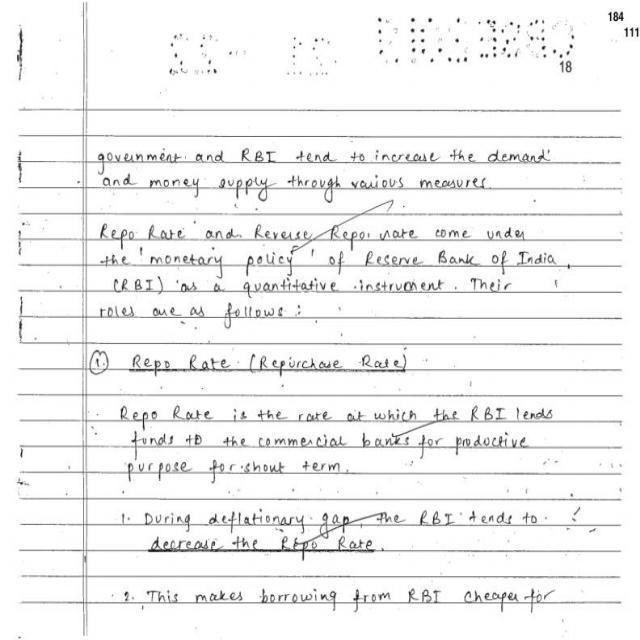 184
111
18
government and RBI tend to increase the demand
and money supply through various measures.
Repo Rate and Reverse Repo rate come under
the 'monetary policy' of Reserve Bank of India,
(RBI) as a quantitative instrument. Their
roles are as follows:
1. Repo Rate (Repurchase Rate)
Repo Rate is the rate at which the RBI lends
funds to the commercial banks for productive
purpose for short term.
1. During deflationary gap, the RBI tends to
decrease the Repo Rate.
2. This makes borrowing from RBI cheaper for